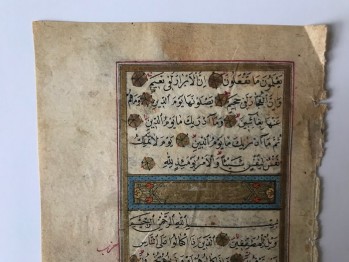 يَعْلَمُونَ مَا تَفْعَلُونَ اِنَّ الْاَبْرَارَ لَفِى نَعِيمٍ
وَاِنَّ الْفُجَّارَ لَفِى جَحِيمٍ يَصْلَوْنَهَا يَوْمَ الدِّينِ وَمَاهُمْ
عَنْهَا بِغَائِبِينَ وَمَا اَدْرٰيكَ مَا يَوْمُ الدِّينِ
ثُمَّ مَا اَدْرٰيكَ مَا يَوْمُ الدِّينِ يَوْمَ لَا تَمْلِكُ
نَفْسٌ لِنَفْسٍ شَيْئًا وَالْاَمْرُ يَوْمَئِذٍ لِلّٰهِ
بِسْمِ اللّٰهِ الرَّحْمٰنِ الرَّحِيمِ
وَيْلٌ لِلْمُطَفِّفِينَ الَّذِينَ اِذَا اكْتَالُوا عَلَى النَّاسِ